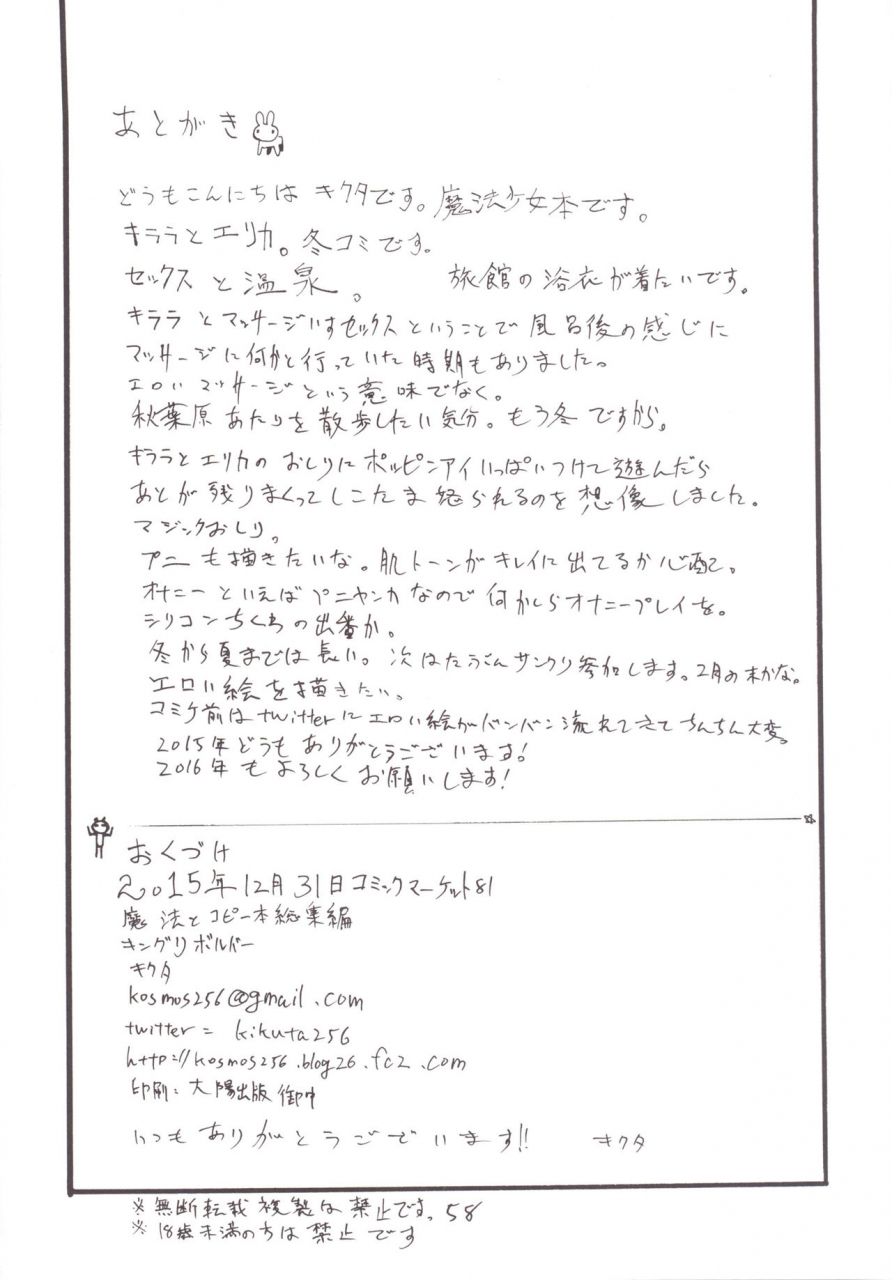 あとがき
どうもこんにちは キクタです。魔法少女本です。
キララとエリカ。冬コミです。
セックスと温泉。 旅館の浴衣が着たいです。
キララとマッサージいすセックスということで風呂後の感じに
マッサージに何かと行っていた時期もありました。
エロいマッサージという意味でなく。
秋葉原あたりを散歩したい気分。もう冬ですから。
キララとエリカのおしりにポッピンアイいっぱいつけて遊んだら
あとが残りまくってしこたま怒られるのを想像しました。
マジックおしり。
プニも描きたいな。肌トーンがキレイに出てるか心配。
オナニーといえばプニヤンカなので何かしらオナニープレイを。
シリコンちくわの出番か。
冬から夏までは長い。次はたぶんサンクリ参加します。2月の末かな。
エロい絵を描きたい。
コミケ前はtwitterにエロい絵がバンバン流れてきてちんちん大変。
2015年どうもありがとうございます!
2016年もよろしくお願いします!
おくづけ
2015年12月31日コミックマーケット81
魔法とコピー本総集編
キングリボルバー
キクタ
kosmos256@gmail.com
twitter= kikuta256
http://kosmos256.blog26.fc2.com
印刷:大陽出版御中
いつもありがとうございます!! キクタ
※無断転載複製は禁止です。58
※18歳未満の方は禁止です